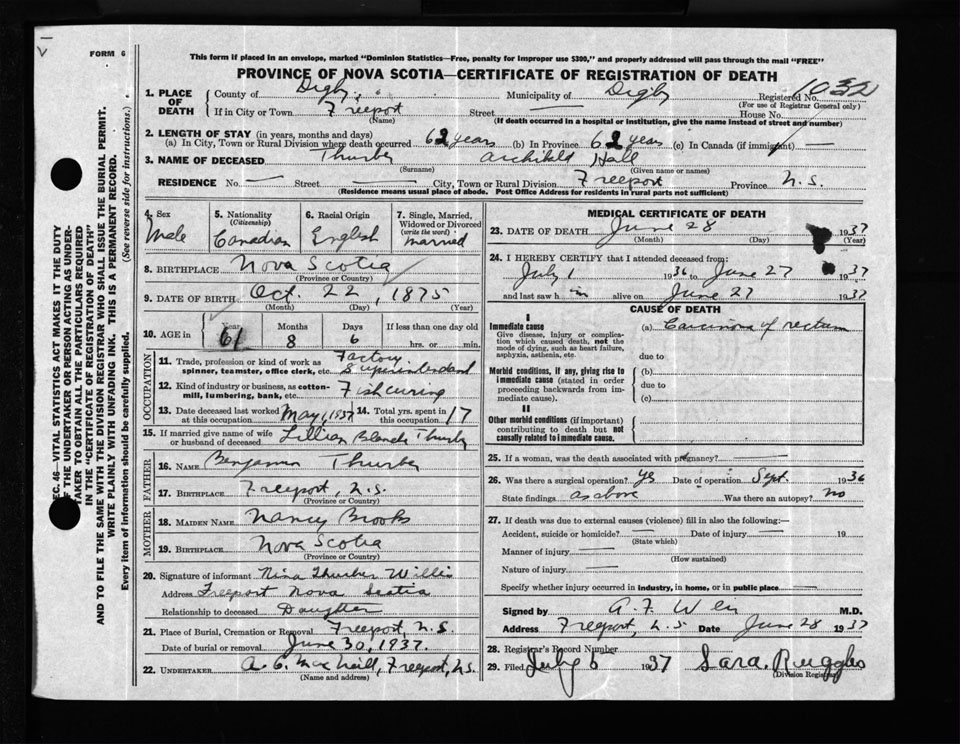 FORM 6
This form if placed in an envelope, marked "Dominion Statistics—Free, penalty for improper use $300," and properly addressed will pass through the mail "FREE"
PROVINCE OF NOVA SCOTIA—CERTIFICATE OF REGISTRATION OF DEATH
1. PLACE OF DEATH County of Digby Municipality of Digby Registered No. 1032
(For use of Registrar General only)
If in City or Town Freeport Street — House No.
(Name) (If death occurred in a hospital or institution, give the name instead of street and number)
2. LENGTH OF STAY (in years, months and days)
(a) In City, Town or Rural Division where death occurred 62 years (b) In Province 62 years (c) In Canada (if immigrant) —
3. NAME OF DECEASED Thurber Archibald Hall
(Surname) (Given name or names)
RESIDENCE No. — Street — City, Town or Rural Division Freeport Province N.S.
(Residence means usual place of abode. Post Office Address for residents in rural parts not sufficient)
4. Sex Male
5. Nationality (Citizenship) Canadian
6. Racial Origin English
7. Single, Married, Widowed or Divorced (write the word) Married
8. BIRTHPLACE Nova Scotia
(Province or Country)
9. DATE OF BIRTH Oct. 22, 1875
(Month) (Day) (Year)
10. AGE in Years 61 Months 8 Days 6 If less than one day old
hrs. or min.
OCCUPATION
11. Trade, profession or kind of work as spinner, teamster, office clerk, etc. Factory Superintendent
12. Kind of industry or business, as cotton-mill, lumbering, bank, etc. Fish curing
13. Date deceased last worked at this occupation May 1, 1937 14. Total yrs. spent in this occupation 17
15. If married give name of wife or husband of deceased Lillian Blanche Thurber
FATHER
16. NAME Benjamin Thurber
17. BIRTHPLACE Freeport, N.S.
(Province or Country)
MOTHER
18. MAIDEN NAME Nancy Brooks
19. BIRTHPLACE Nova Scotia
(Province or Country)
20. Signature of informant Nina Thurber Willis
Address Freeport Nova Scotia
Relationship to deceased Daughter
21. Place of Burial, Cremation or Removal Freeport, N.S.
Date of burial or removal June 30, 1937.
22. UNDERTAKER A. C. MacNeill, Freeport, N.S.
(Name and address)
MEDICAL CERTIFICATE OF DEATH
23. DATE OF DEATH June 28 1937
(Month) (Day) (Year)
24. I HEREBY CERTIFY that I attended deceased from:
July 1 1936 to June 27 1937
and last saw him alive on June 27 1937
CAUSE OF DEATH
I
Immediate cause
Give disease, injury or complication which caused death, not the mode of dying, such as heart failure, asphyxia, asthenia, etc.
(a) Carcinoma of rectum
due to
Morbid conditions, if any, giving rise to immediate cause (stated in order proceeding backwards from immediate cause).
(b)
due to
(c)
II
Other morbid conditions (if important) contributing to death but not causally related to immediate cause.
25. If a woman, was the death associated with pregnancy? —
26. Was there a surgical operation? Yes Date of operation Sept. 1936
State findings as above Was there an autopsy? no
27. If death was due to external causes (violence) fill in also the following:—
Accident, suicide or homicide? — Date of injury — 19
(State which)
Manner of injury —
(How sustained)
Nature of injury —
Specify whether injury occurred in industry, in home, or in public place —
Signed by A. F. M.D.
Address Freeport, N.S. Date June 28 1937
28. Registrar's Record Number
29. Filed July 6 1937 Sara Ruggles
(Division Registrar)
SEC. 46—VITAL STATISTICS ACT MAKES IT THE DUTY
OF THE UNDERTAKER OR PERSON ACTING AS UNDER-
TAKER TO OBTAIN ALL THE PARTICULARS REQUIRED
IN THE "CERTIFICATE OF REGISTRATION OF DEATH"
AND TO FILE THE SAME WITH THE DIVISION REGISTRAR WHO SHALL ISSUE THE BURIAL PERMIT.
WRITE PLAINLY WITH UNFADING INK. THIS IS A PERMANENT RECORD.
Every item of information should be carefully supplied. (See reverse side for instructions.)